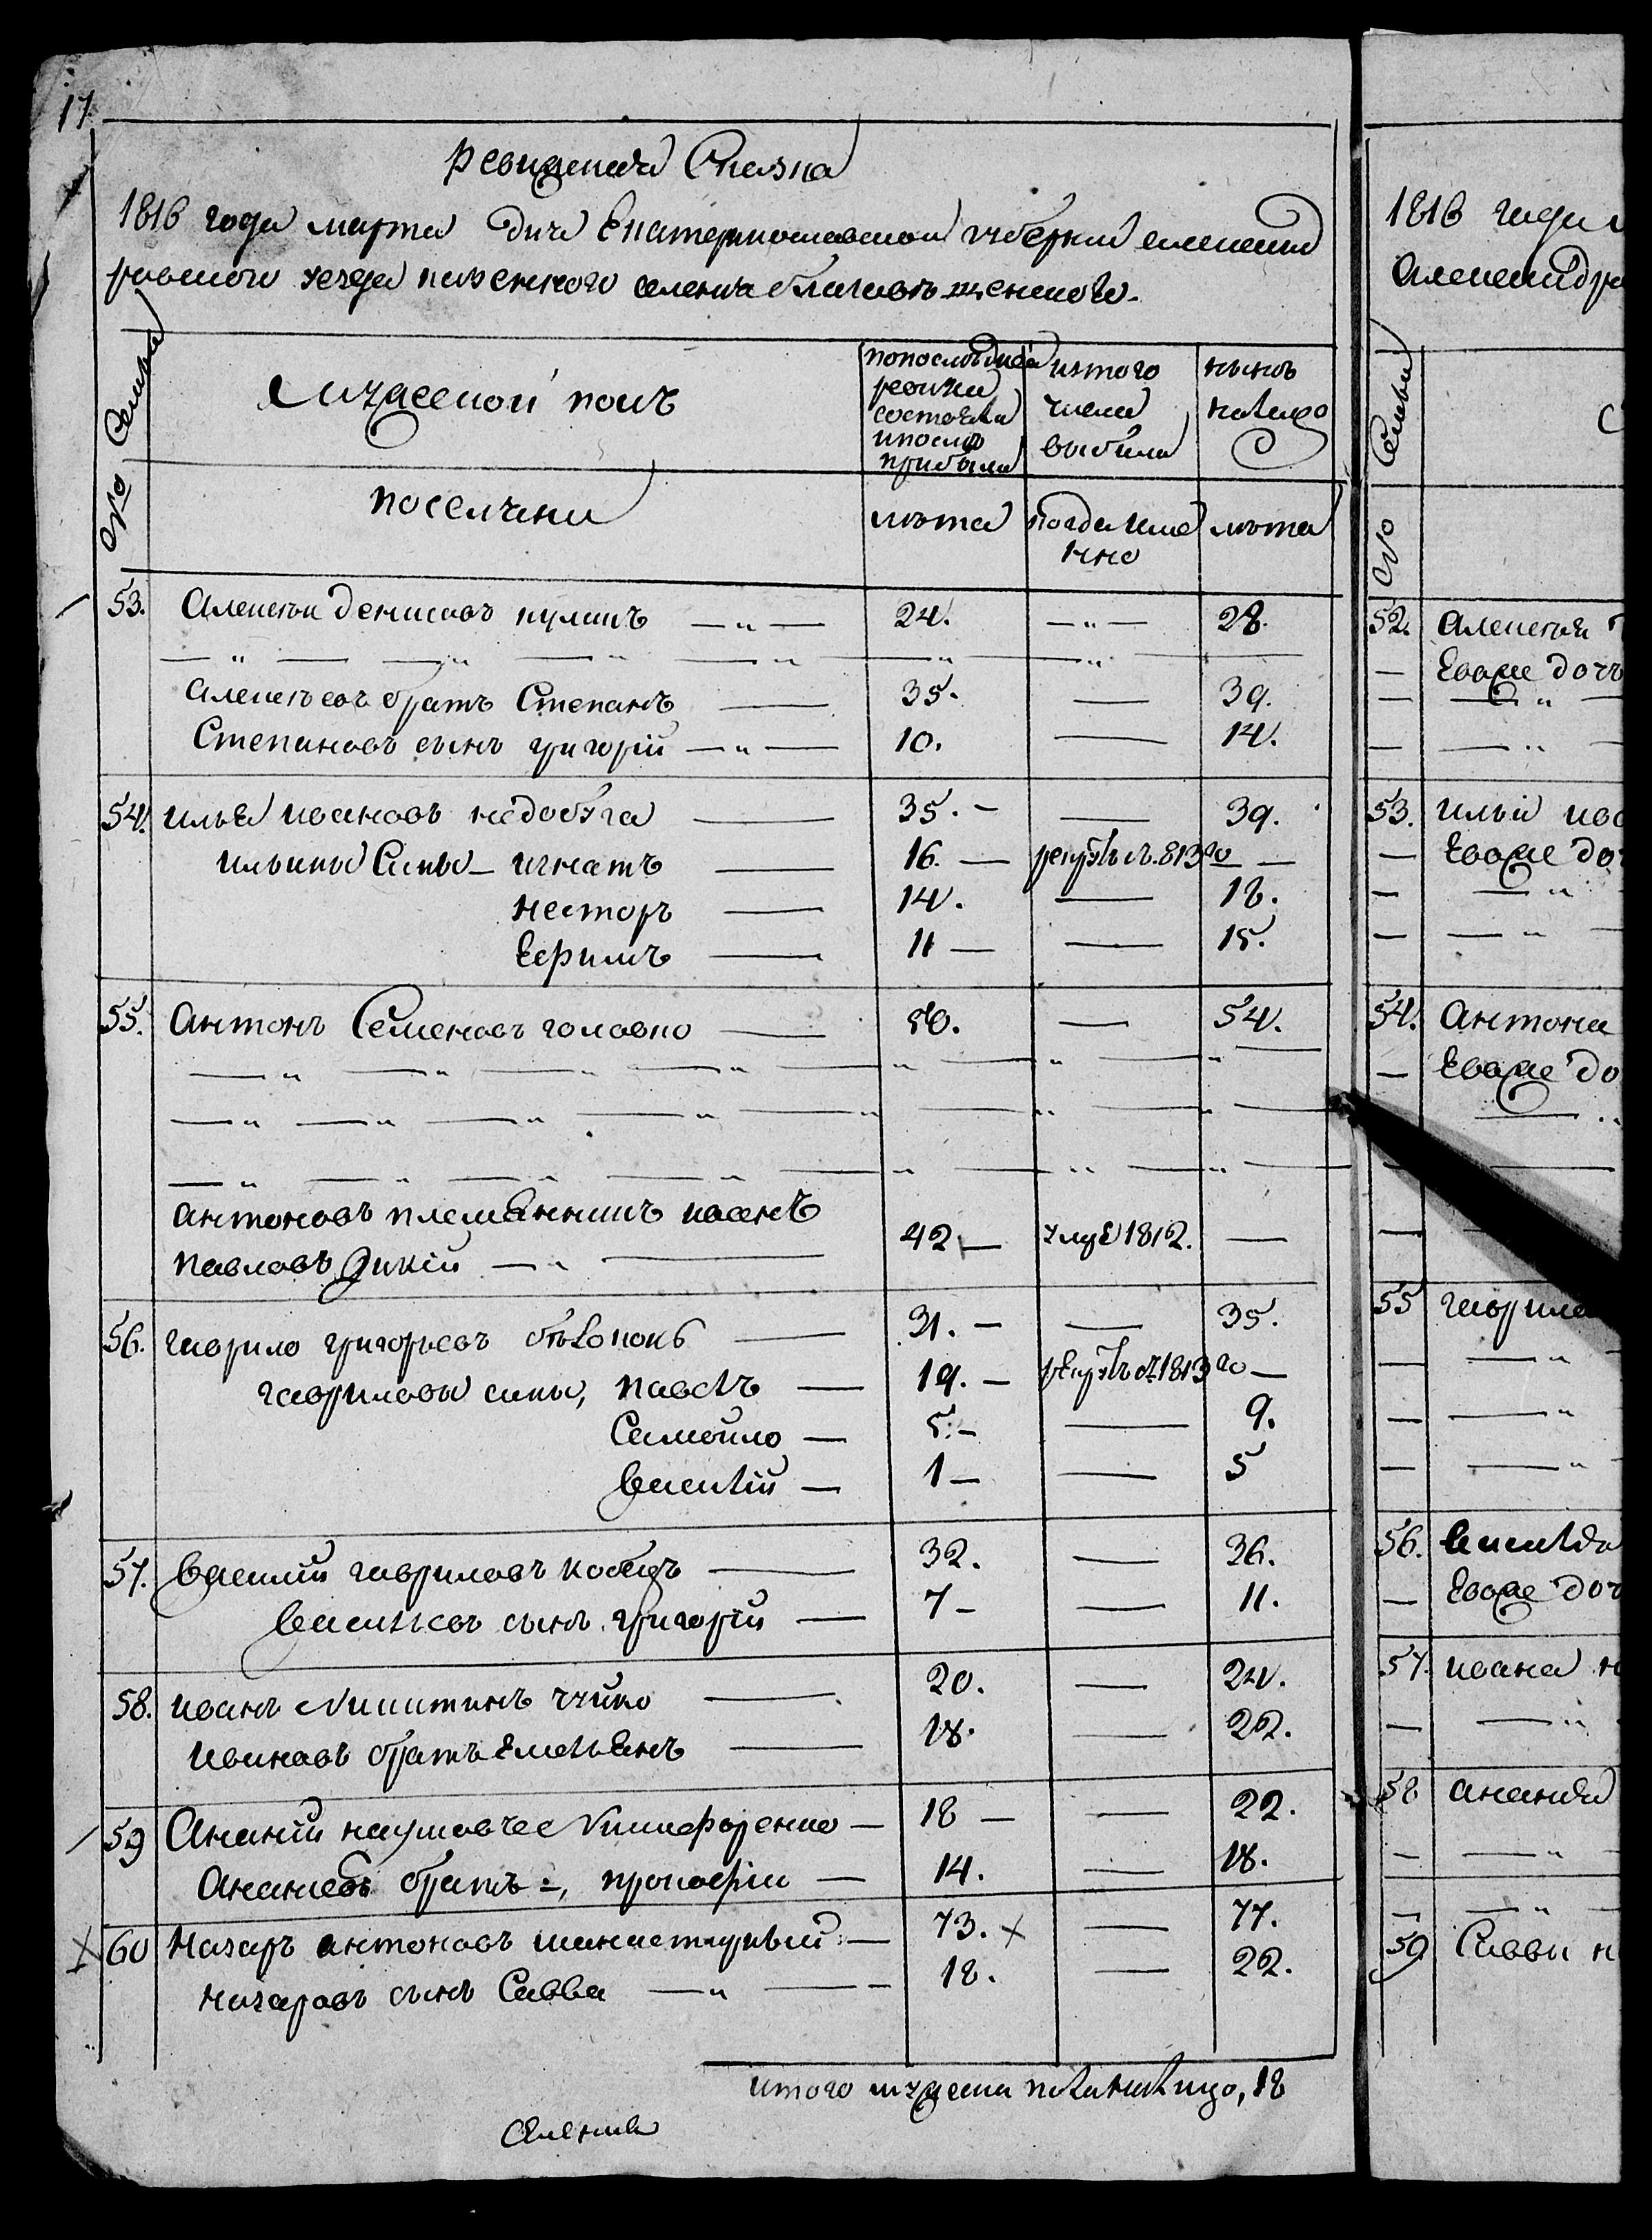 17
Ревизская Сказка
1816 года марта дня Екатеринославской губернии александ
ровского уезда казенного селения благовѣщенского.
№ Семьи
Мужеской полъ
попослѣдней ревизии состояло ипослѣ прибыло
изтого числа выбыло
нынѣ налицо
поселяне
лѣта
когда именно
лѣта
53. Алексѣй денисовъ кулишъ — " — 24. — " — 28.
Алексѣевъ братъ Степанъ — 35. — 39.
Степановъ сынъ григорій — " — 10. — 14.
54. илья ивановъ недобуга — 35. — — 39.
ильины Сыны — игнатъ — 16. — рекрутъ въ 813го —
несторъ — 14. — 18.
Ефимъ — 11 — — 15.
55. Антонъ Семеновъ головко — 50. — 54.
антоновъ племянникъ иванъ
павловъ дикій — " — 42 — умре 1812. —
56. гаврило григорьевъ бѣлоконь — 31. — — 35.
гавриловы сыны, павелъ — 19. — рекрутъ съ 1813го —
Самойло — 5. — — 9.
Василій — 1 — — 5
57. Василий гавриловъ кобецъ — 32. — 36.
Васильевъ сынъ григорій — 7 — — 11.
58. иванъ Никитинъ чуйко — 20. — 24.
ивановъ братъ Емельянъ — 18. — 22.
59 Ананій наумовъ Никифоренко — 18 — — 22.
Ананиевъ братъ =, прокофій — 14. — 18.
60 Назаръ антоновъ манастырный — 73. х — 77.
назаровъ сынъ Савва — " — 18. — 22.
итого мужеска пола налицо, 18
1816 года
Александро
№ Семьи
52. Алексѣя
— Евоже дочь
53. ильи ива
— Евоже до
54. Антона
— Евоже до
55 гаврила
56. Василья
— Евоже доч
57. ивана н
58 ананія
59 Саввы н